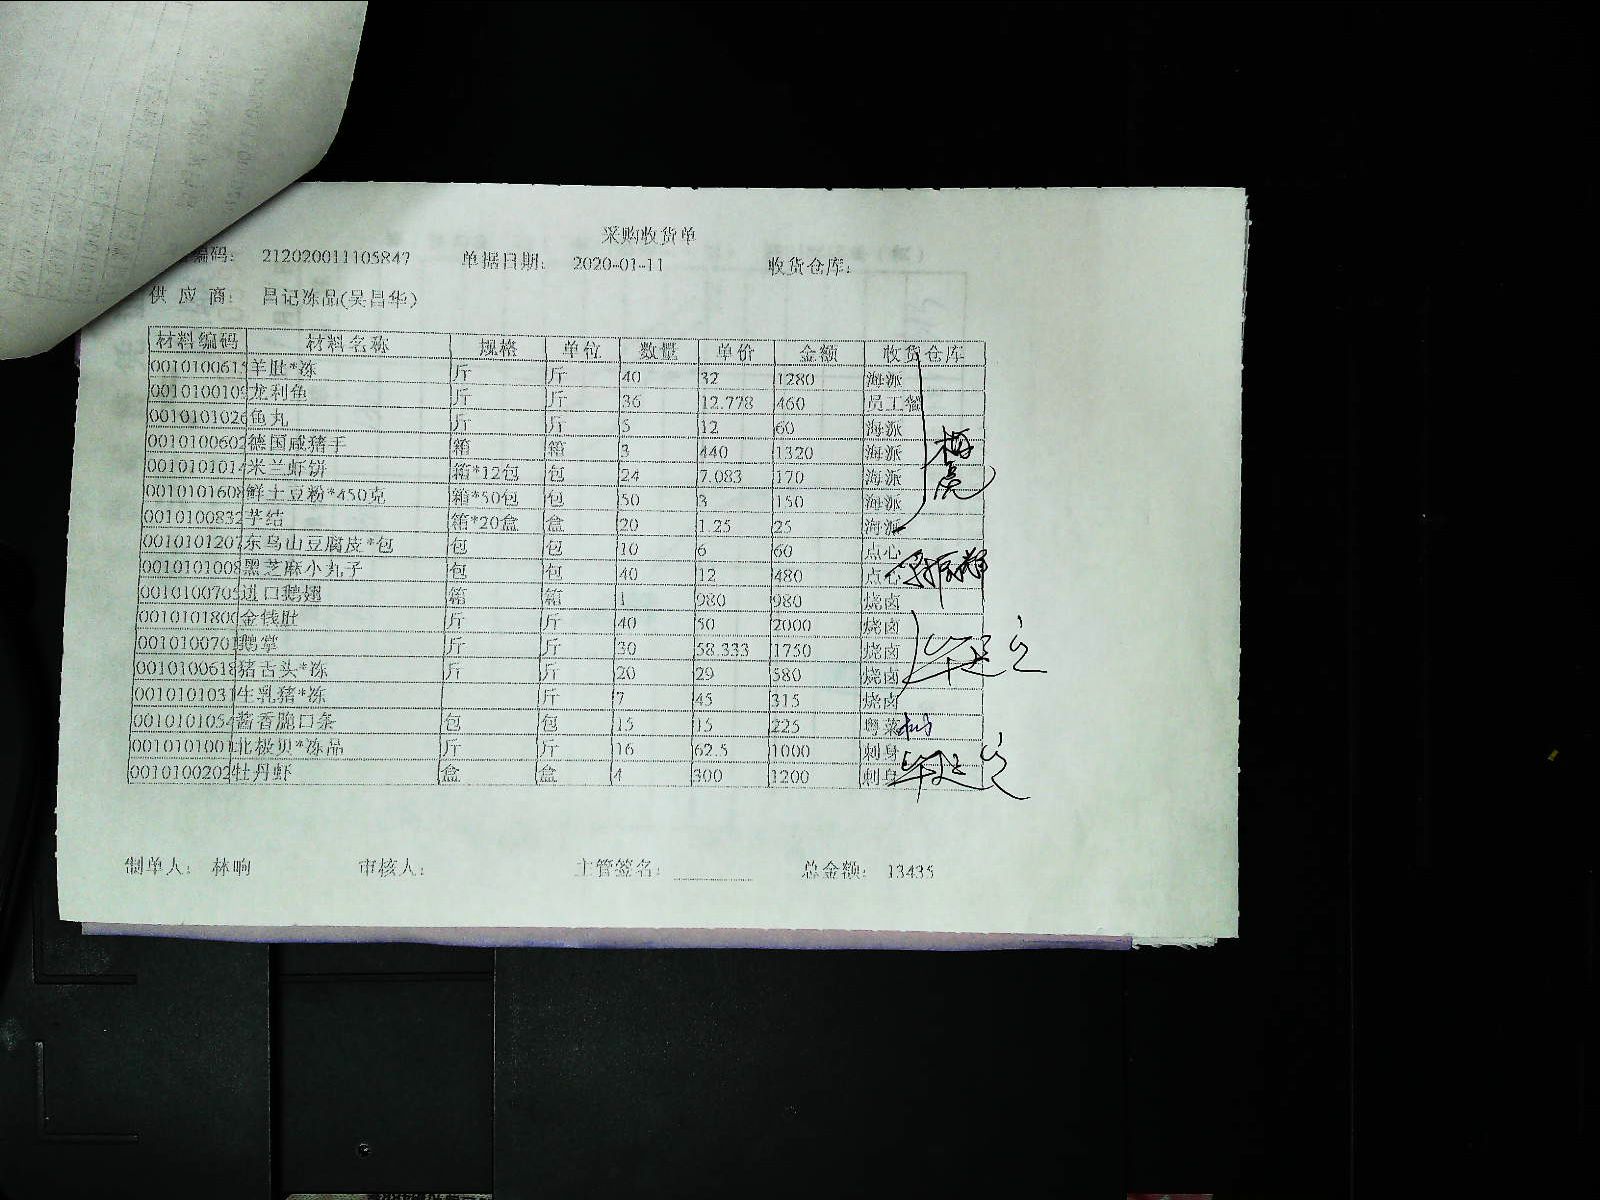 采购收货单
编码: 212020011105847 单据日期: 2020-01-11 收货仓库:
供 应 商: 昌记冻品(吴昌华)
材料编码 材料名称 规格 单位 数量 单价 金额 收货仓库
001010061 羊肚*冻 斤 斤 40 32 1280 海派
001010010 龙利鱼 斤 斤 36 12.778 460 员工餐
0010101026 鱼丸 斤 斤 5 12 60 海派
0010100602 德国咸猪手 箱 箱 3 440 1320 海派
001010101 米兰虾饼 箱*12包 包 24 7.083 170 海派
001010160 鲜土豆粉*450克 箱*50包 包 50 3 150 海派
0010100832 芋结 箱*20盒 盒 20 1.25 25 海派
001010120 东乌山豆腐皮*包 包 包 10 6 60 点心
0010101008 黑芝麻小丸子 包 包 40 12 480 点心
001010070 进口鹅翅 箱 箱 1 980 980 烧卤
001010180 金钱肚 斤 斤 40 50 2000 烧卤
001010070 鹅掌 斤 斤 30 58.333 1750 烧卤
001010061 猪舌头*冻 斤 斤 20 29 580 烧卤
001010103 生乳猪*冻 斤 7 45 315 烧卤
001010105 酱香脆口条 包 包 15 15 225 粤菜
001010100 北极贝*冻品 斤 斤 16 62.5 1000 刺身
0010100202 牡丹虾 盒 盒 4 300 1200 刺身
制单人: 林响 审核人: 主管签名: 总金额: 13435